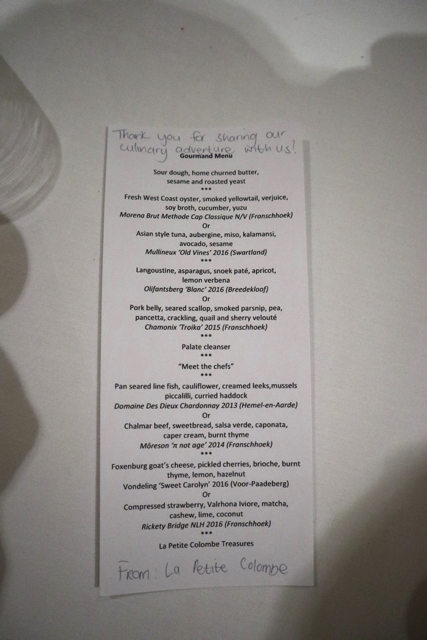 Thank you for sharing our
culinary adventure with us!
Gourmand Menu
Sour dough, home churned butter,
sesame and roasted yeast
***
Fresh West Coast oyster, smoked yellowtail, verjuice,
soy broth, cucumber, yuzu
Morena Brut Methode Cap Classique N/V (Franschhoek)
Or
Asian style tuna, aubergine, miso, kalamansi,
avocado, sesame
Mullineux 'Old Vines' 2016 (Swartland)
***
Langoustine, asparagus, snoek paté, apricot,
lemon verbena
Olifantsberg 'Blanc' 2016 (Breedekloof)
Or
Pork belly, seared scallop, smoked parsnip, pea,
pancetta, crackling, quail and sherry velouté
Chamonix 'Troika' 2015 (Franschhoek)
***
Palate cleanser
***
"Meet the chefs"
***
Pan seared line fish, cauliflower, creamed leeks,mussels
piccalilli, curried haddock
Domaine Des Dieux Chardonnay 2013 (Hemel-en-Aarde)
Or
Chalmar beef, sweetbread, salsa verde, caponata,
caper cream, burnt thyme
Môreson 'π not age' 2014 (Franschhoek)
***
Foxenburg goat's cheese, pickled cherries, brioche, burnt
thyme, lemon, hazelnut
Vondeling 'Sweet Carolyn' 2016 (Voor-Paadeberg)
Or
Compressed strawberry, Valrhona Iviore, matcha,
cashew, lime, coconut
Rickety Bridge NLH 2016 (Franschhoek)
***
La Petite Colombe Treasures
From: La Petite Colombe